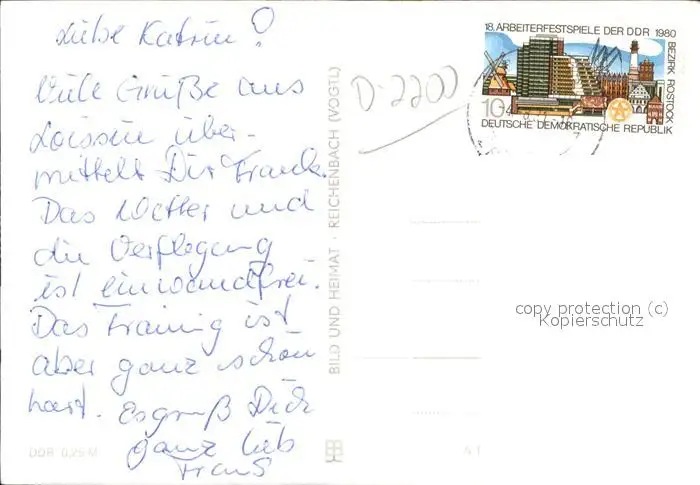 Liebe Katrin!
Viele Grüße aus
Loissin über-
mittelt Dir Frank.
Das Wetter und
die Verflegung
ist einwandfrei.
Das Training ist
aber ganz schön
hart. Es grüß Dich
ganz lieb
Frank
DDR 0,25 M
BILD UND HEIMAT · REICHENBACH (VOGTL)
D-2200
18. ARBEITERFESTSPIELE DER DDR 1980
BEZIRK ROSTOCK
10
DEUTSCHE DEMOKRATISCHE REPUBLIK
copy protection (c)
Kopierschutz